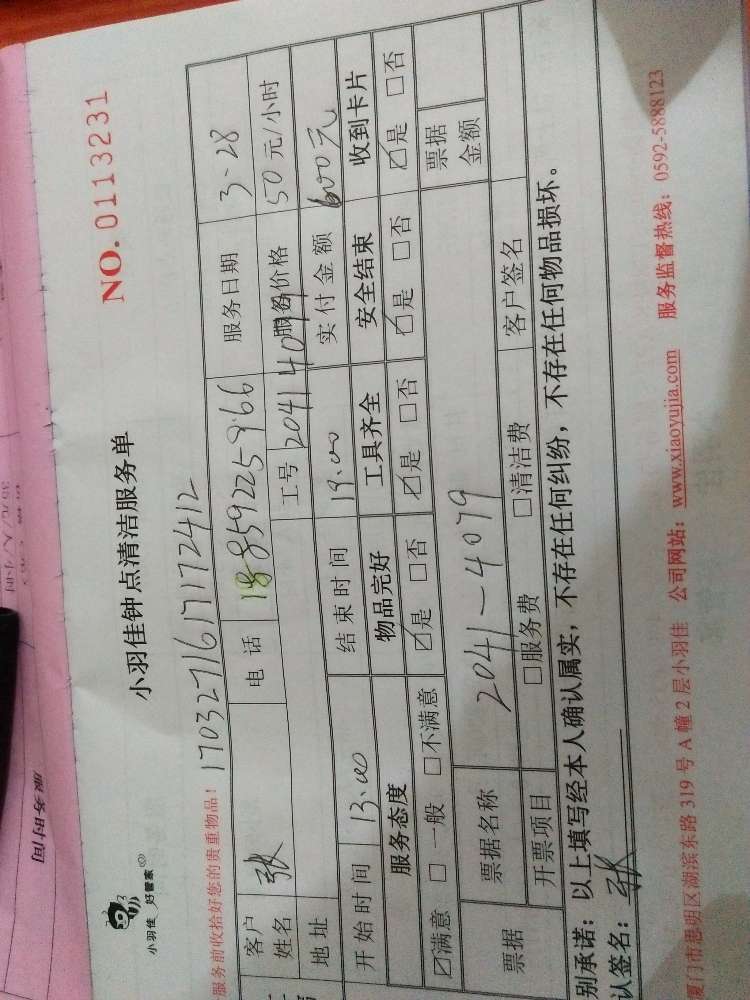 小羽佳 好管家
小羽佳钟点清洁服务单
NO.0113231
服务前收拾好您的贵重物品！ 17032716171172412
客户姓名 张 电话 18859225966 服务日期 3-28
地址 工号 2041 4079 服务价格 50元/小时
开始时间 13.00 结束时间 19.00 实付金额 600元
服务态度 物品完好 工具齐全 安全结束 收到卡片
☑满意 □一般 □不满意 ☑是 □否 ☑是 □否 ☑是 □否 ☑是 □否
票据 票据名称 2041-4079 票据金额
开票项目 □服务费 □清洁费 客户签名
别承诺：以上填写经本人确认属实，不存在任何纠纷，不存在任何物品损坏。
认签名：张
厦门市思明区湖滨东路319号A幢2层小羽佳 公司网站：www.xiaoyujia.com 服务监督热线：0592-5888123
服务时间